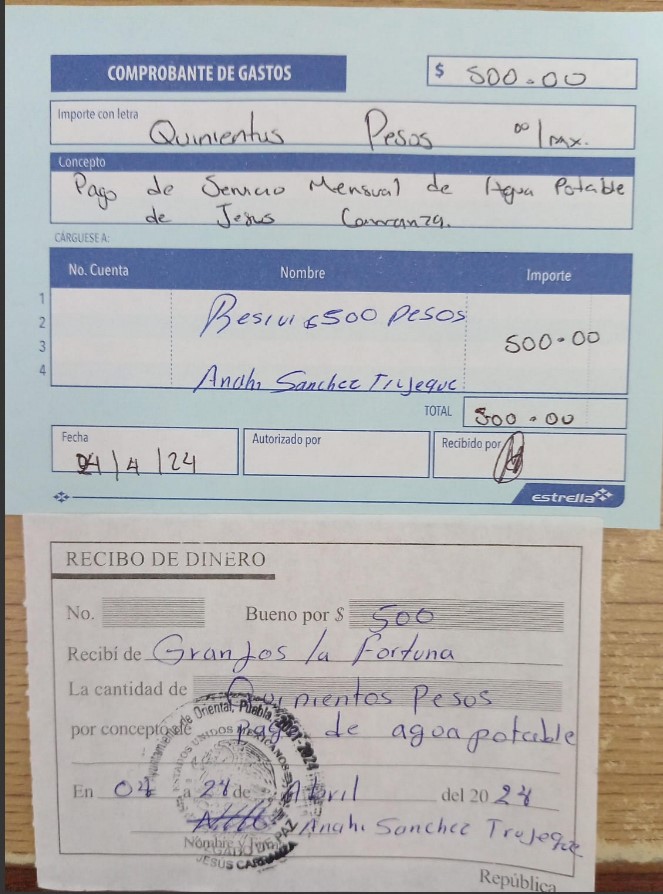 COMPROBANTE DE GASTOS
$ 500.00
Importe con letra
Quinientus Pesos 00/mx.
Concepto
Pago de Servicio Mensual de Agua Potable
de Jesus Carranza.
CÁRGUESE A:
No. Cuenta Nombre Importe
1
2 Resivi $500 pesos
3 500.00
4 Anahi Sanchez Trujeque
TOTAL 500.00
Fecha Autorizado por Recibido por
04/4/24
estrella
RECIBO DE DINERO
No. Bueno por $ 500
Recibí de Granjos la Fortuna
La cantidad de Quinientos Pesos
por concepto de pago de agua potable
En 04 a 24 de Abril del 2024
Anahi Sanchez Trujeque
Nombre y
República
de Oriental, Puebla, 2021-2024
ESTADOS UNIDOS MEXICANOS
JUZGADO DE PAZ
JESUS CARRANZA